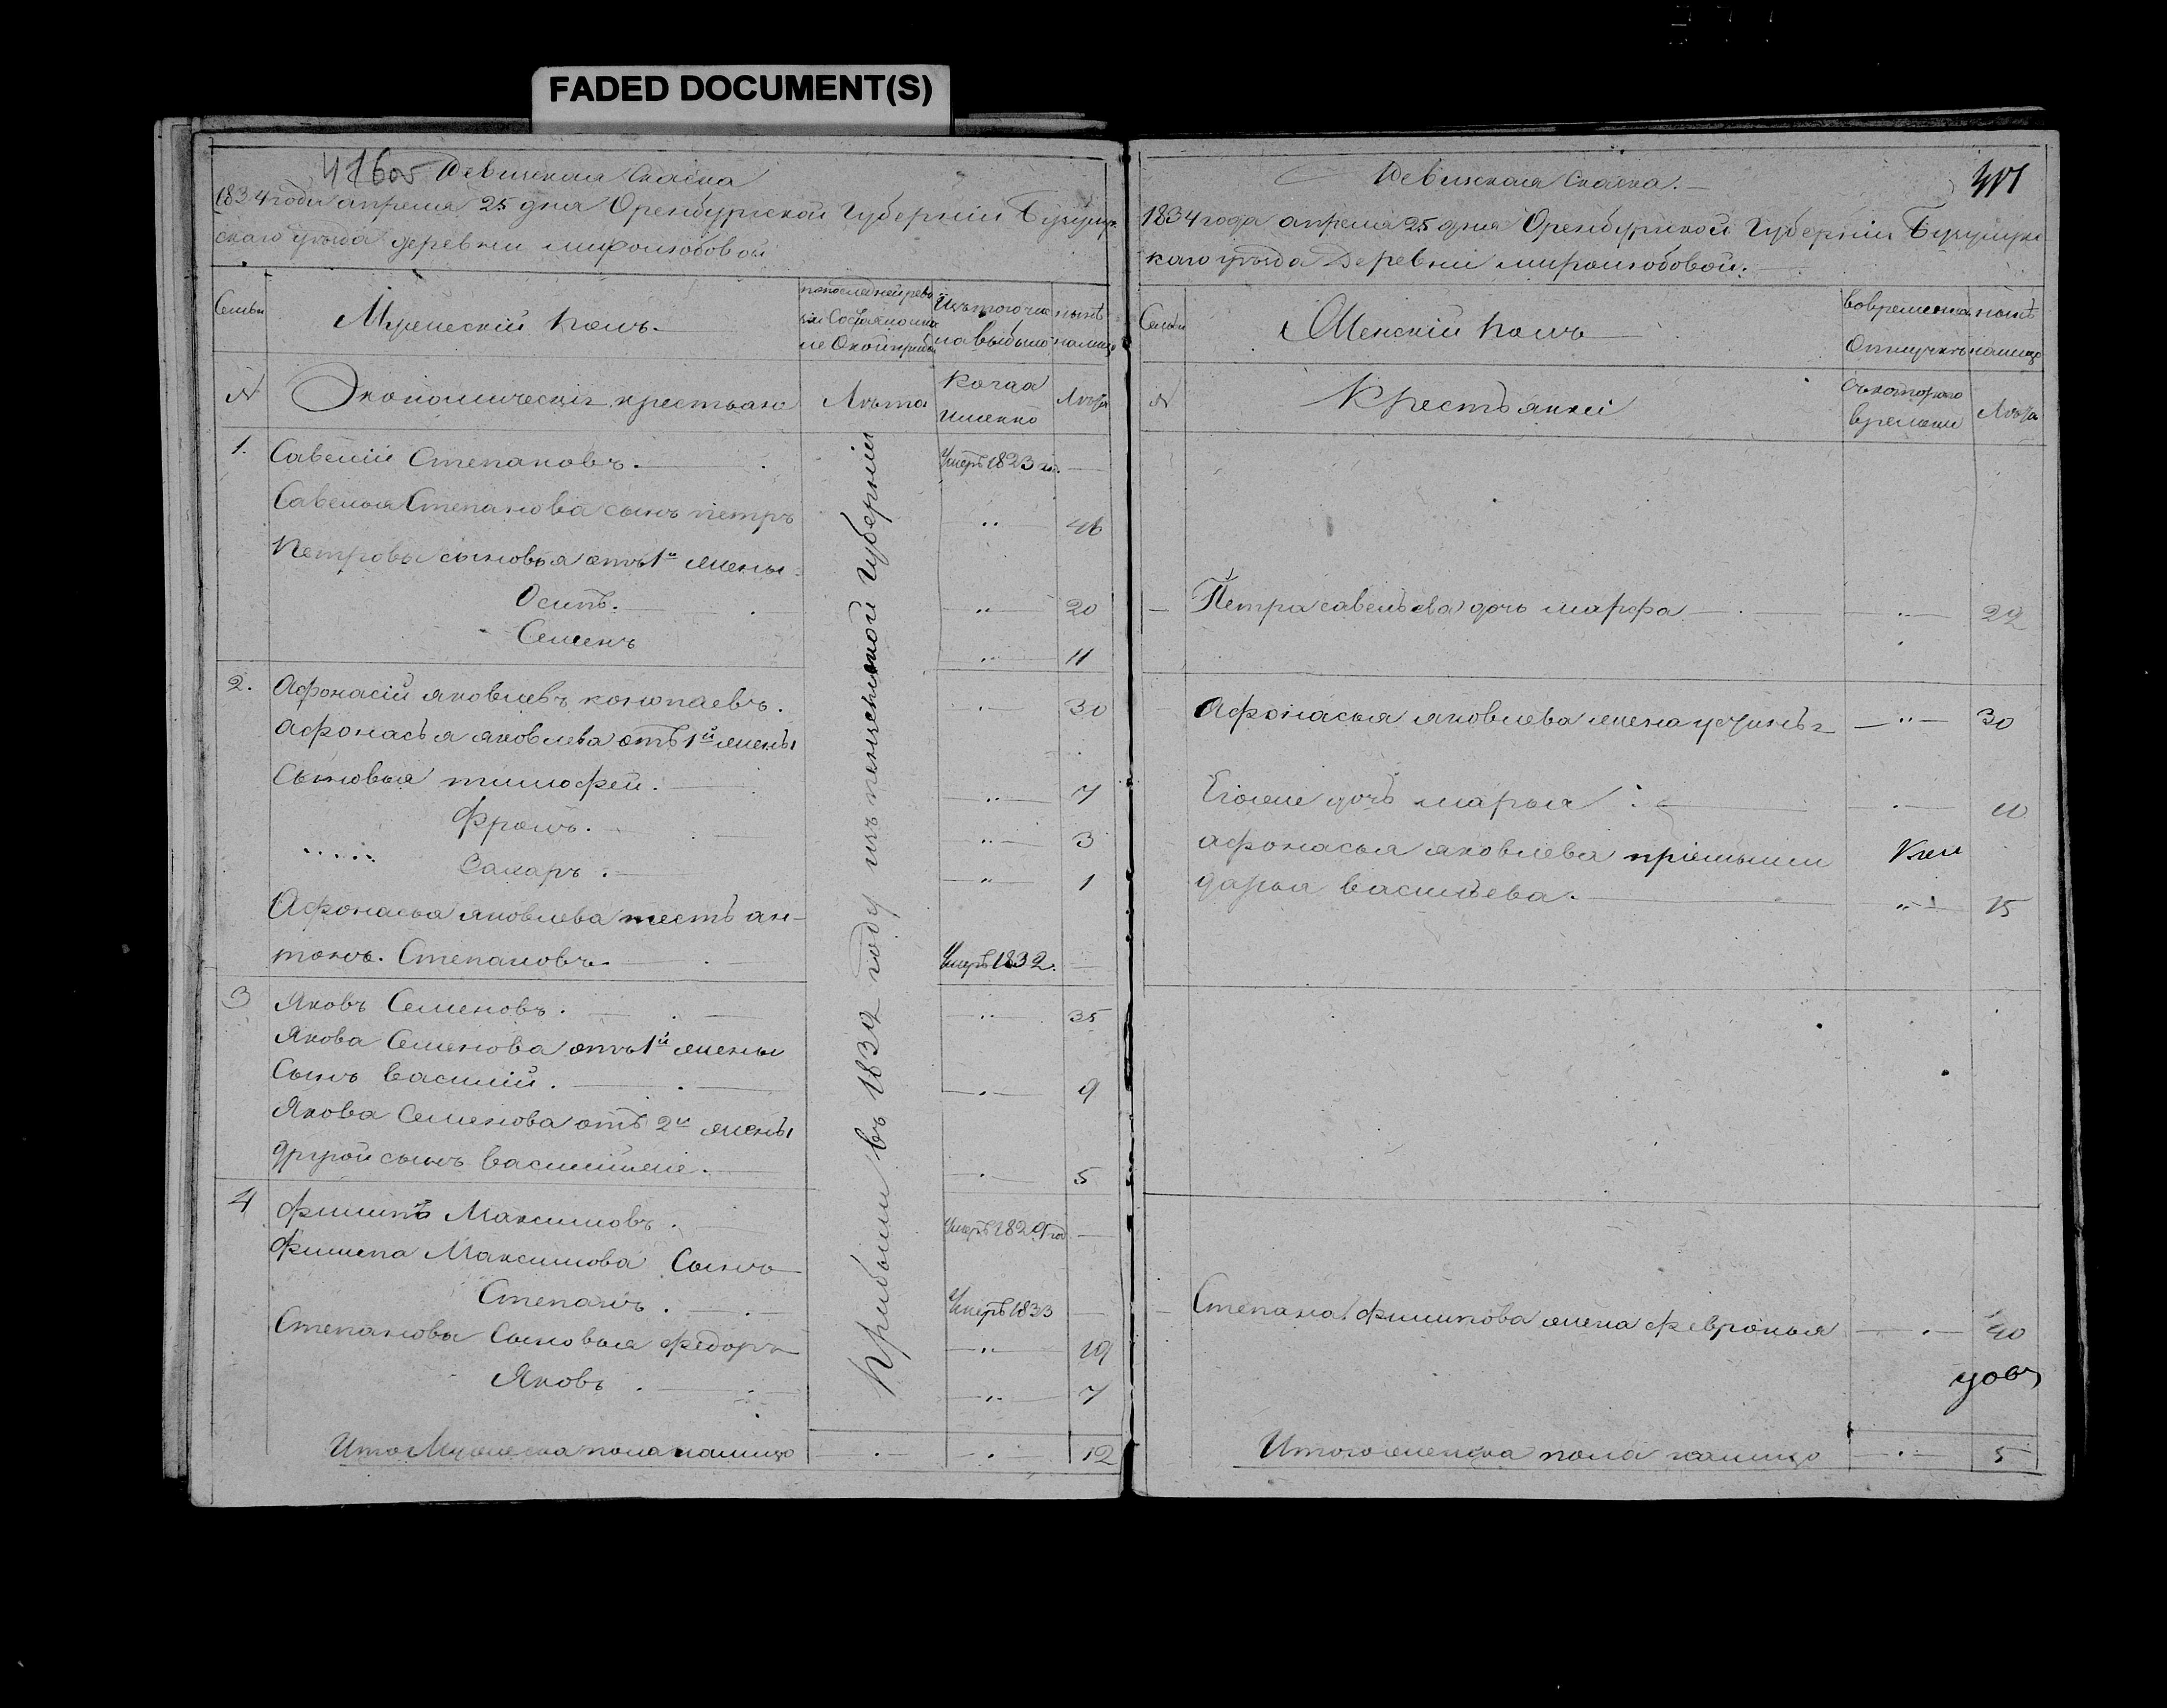 FADED DOCUMENT(S)
Ревизская Сказка
1834 года апреля 25 дня Оренбургской Губернiи Бузулук
скаго уѣзда деревни миролюбовой
Семьи
Мужескiй полъ.
по последней реви
зiи Состояло и на
ле Оной прибы
Изъ того чи
ла выбыло
нынѣ
на лицо
№
Экономическiя крестьяне
Лѣта
Когда
именно
Лѣта
1.
Савелiй Степановъ.
Умеръ 1823 го.
Савелья Степанова сынъ петръ
46
Петровы сыновья отъ 1й жены
Осипъ.
20
Семенъ
11
2.
Афонасiй яковлевъ конопаевъ.
30
Афонасья яковлева отъ 1й жены
Сыновья тимофей.
7
Фролъ.
3
Захаръ.
1
Афонасья яковлева тесть ан-
тонъ. Степановъ.
Умеръ 1832.
3
Яковъ Семеновъ.
35
Якова Семенова отъ 1й жены
Сынъ василiй.
9
Якова Семенова отъ 2й жены
другой сынъ василiй же.
5
4
Филипъ Максимовъ.
Умеръ 1829 год
Филипа Максимова Сынъ
Степанъ.
Умеръ 1833
Степановы Сыновья федоръ
19
Яковъ.
7
Прибыли въ 1832 году изъ пензенской Губернiи
Итого Мужеска пола налицо
12
Ревизская Сказка.
1834 года апреля 25 дня Оренбургской Губернiи Бузулукс
каго уѣзда Деревнi миролюбовой.
Семьи
Женскiй полъ
во временна
Отлучкѣ
нынѣ
налицо
№
Крестьянки
Съ котораго
времени
Лѣта
Петра савельева дочь марфа
22
Афонасья яковлева жена устинья
30
Егоже дочь марья
10
афонасья яковлева прiемыши
дарья васильева.
15
Степана филипова жена февронья
40
Итого женска пола налицо
5